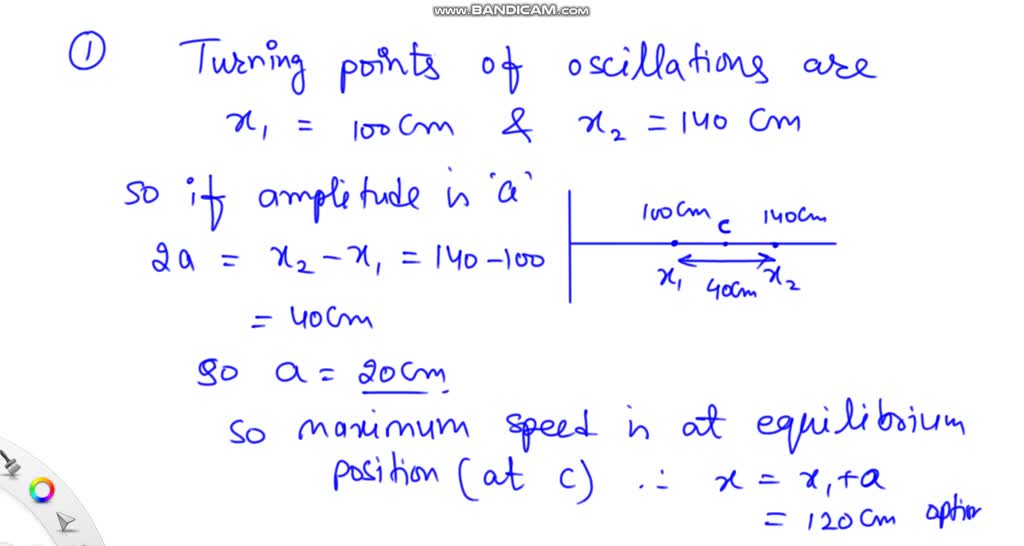 www.BANDICAM.com
① Turning points of oscillations are
x₁ = 100 cm & x₂ = 140 cm
so if amplitude is 'a'
2a = x₂ - x₁ = 140 - 100
= 40 cm
100 cm c 140 cm
x₁ 40cm x₂
so a = 20 cm
so maximum speed is at equilibrium
position (at c) ∴ x = x₁ + a
= 120 cm option